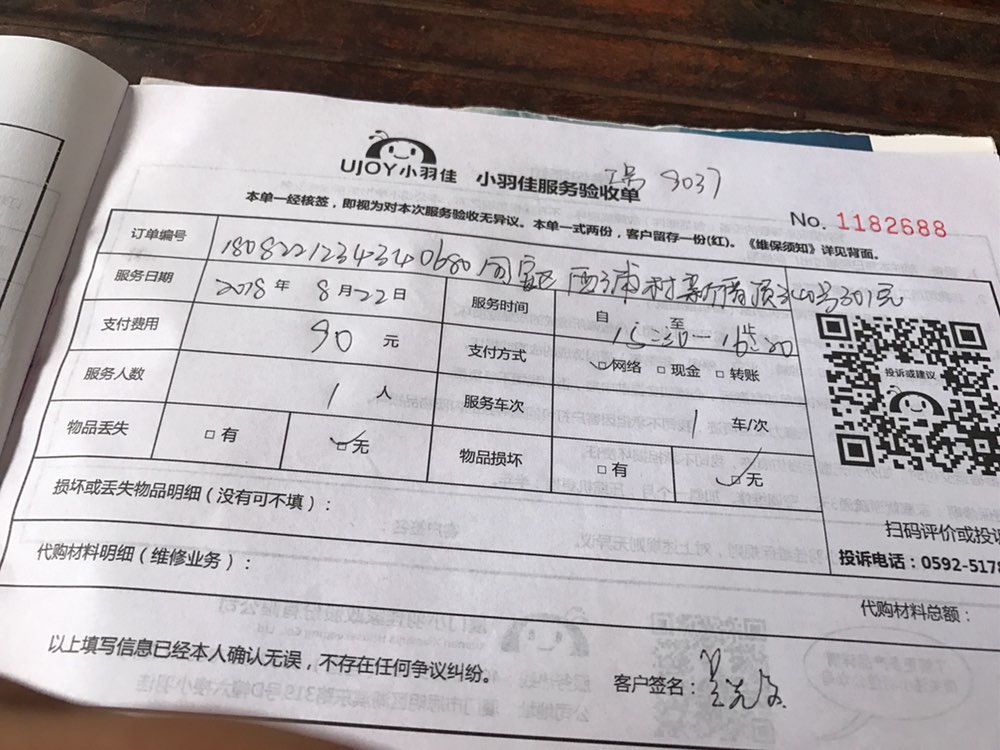 UJOY小羽佳 小羽佳服务验收单 工号 9037
No. 1182688
本单一经核签，即视为对本次服务验收无异议。本单一式两份，客户留存一份(红)。《维保须知》详见背面。
订单编号 180822123434 0680 同安区 西浦村
服务日期 2018 年 8 月 22 日 服务时间 自 至
支付费用 90 元 支付方式 网络 □ 现金 □ 转账
服务人数 1 人 服务车次 1 车/次
物品丢失 □ 有 无 物品损坏 □ 有 无
投诉或建议
损坏或丢失物品明细（没有可不填）：
扫码评价或投
投诉电话：0592-5178
代购材料明细（维修业务）：
代购材料总额：
以上填写信息已经本人确认无误，不存在任何争议纠纷。
客户签名：